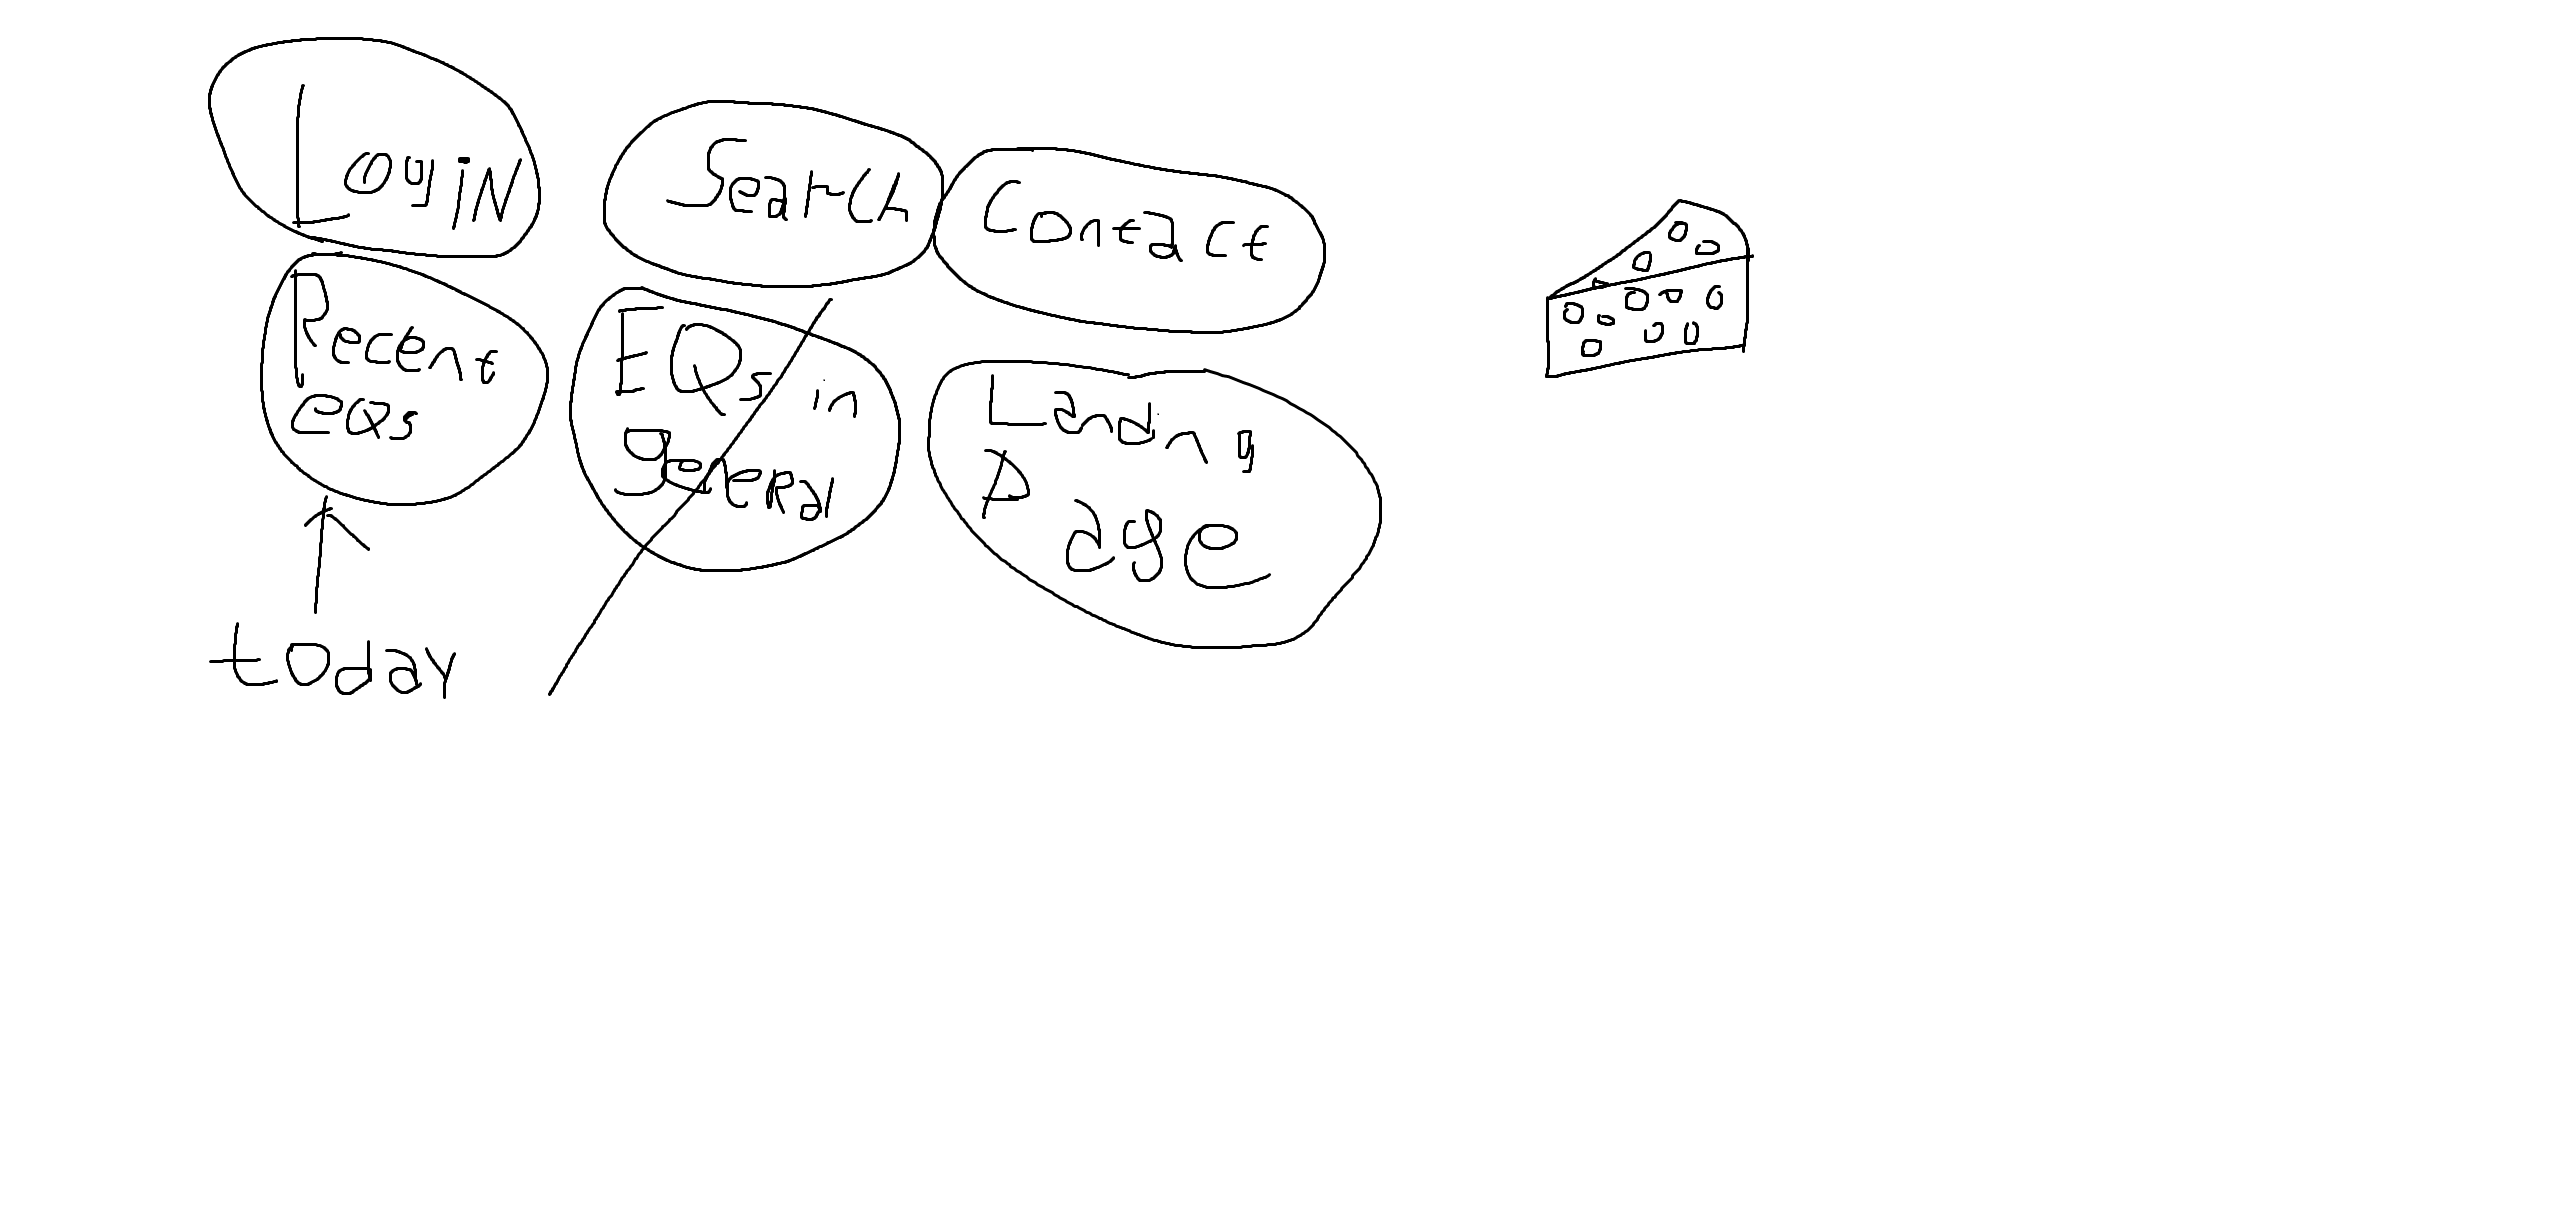 Login
Search
Contact
Recent
eqs
EQs in
general
Landng
Page
today